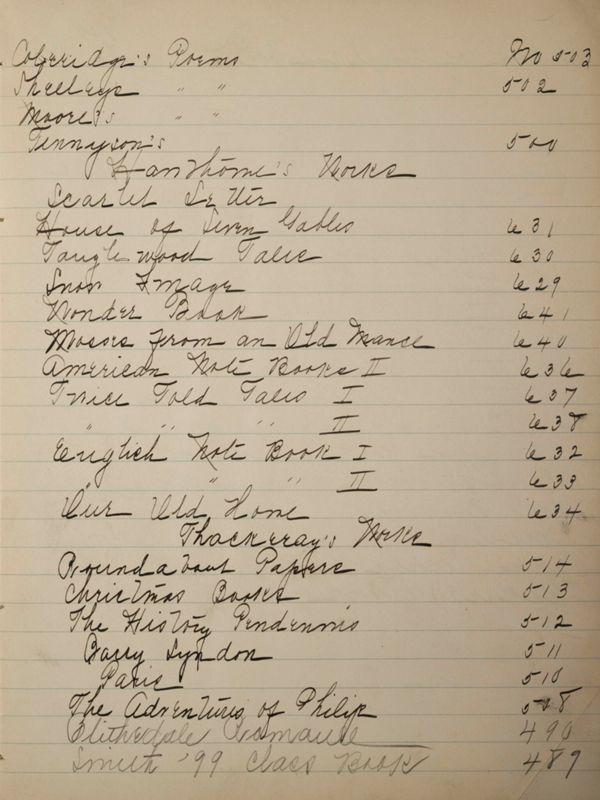 Coleridge's Poems No 503
Shelleys " " 502
Moore's " "
Tennyson's 500
Hawthorne's Works
Scarlet Letter
House of Seven Gables 631
Tanglewood Tales 630
Snow Image 629
Wonder Book 641
Mosses from an Old Mance 640
American Note Books II 636
Twice Told Tales I 637
" " " II 638
English Note Book I 632
" " " II 633
Our Old Home 634
Thackeray's Works
Roundabout Papers 514
Christmas Books 513
The History Pendennis 512
Barry Lyndon 511
Paris 510
The Adventures of Philip 508
Blithedale Romance 490
Smith '99 Class Book 489